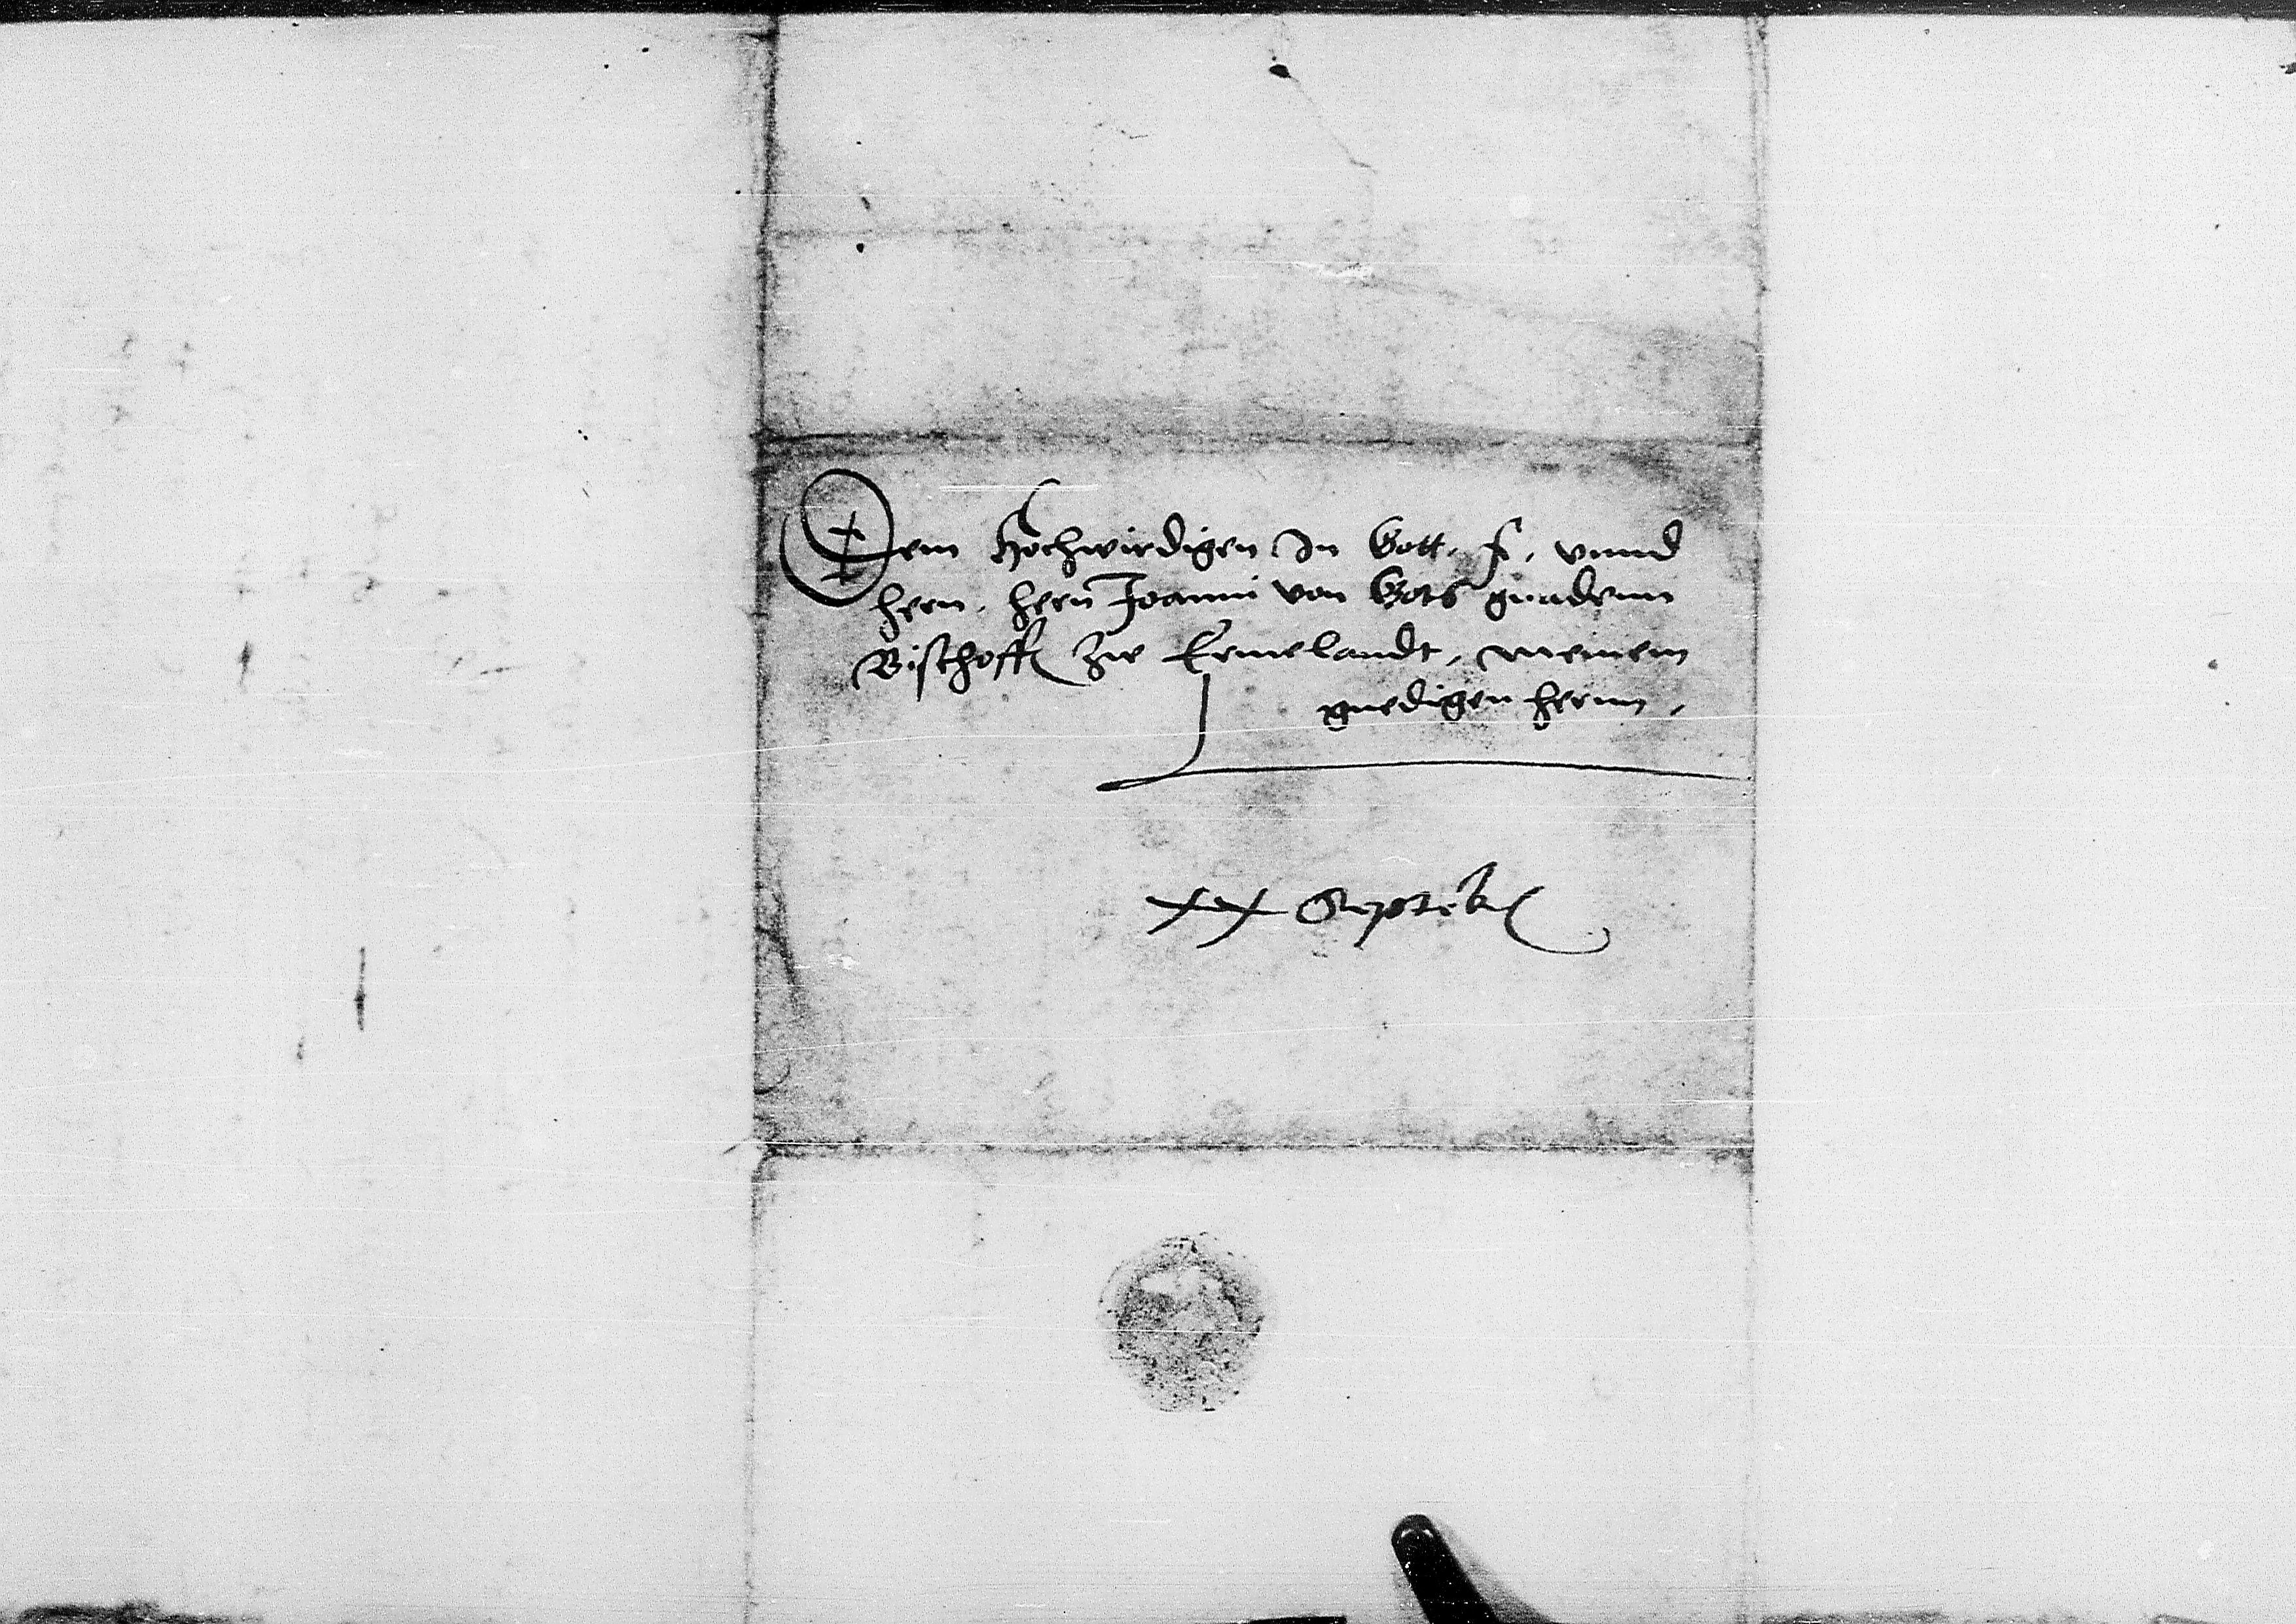 Dem Hochwirdigen In Gott, f, vnnd
hern, hern Joanni von Gots gnadenn
Bischoff zw Ermelandt, meinem
gnedigen hernn,
xx Septeb